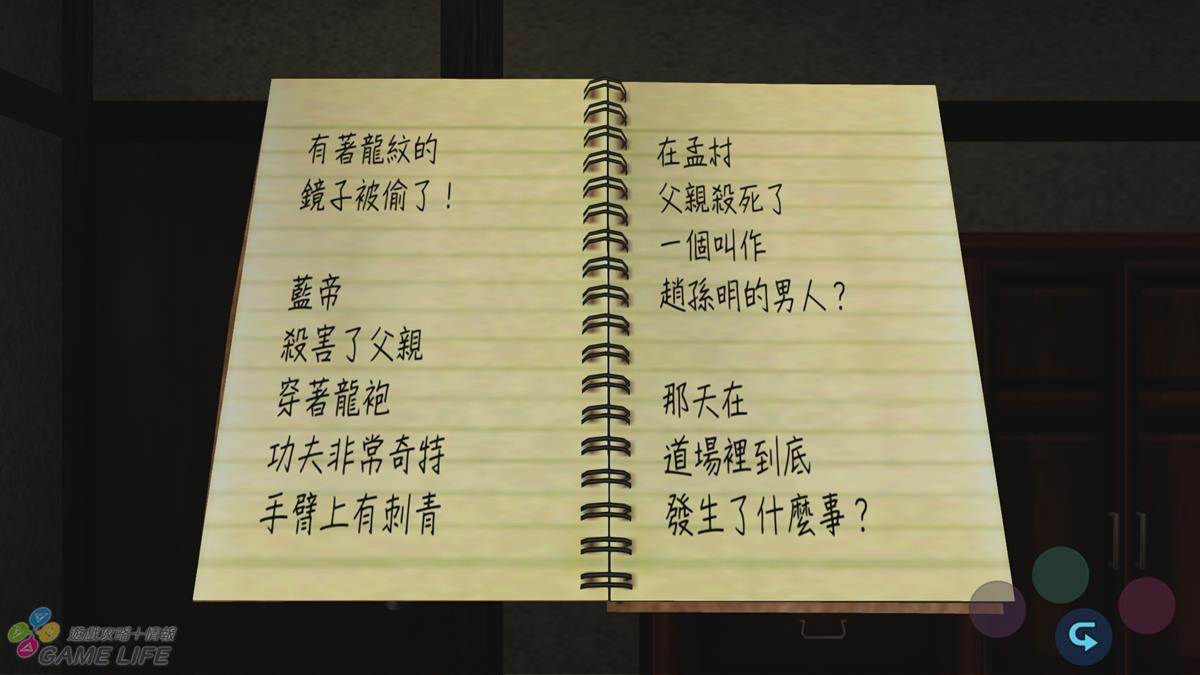 有著龍紋的
鏡子被偷了！
藍帝
殺害了父親
穿著龍袍
功夫非常奇特
手臂上有刺青
在孟村
父親殺死了
一個叫作
趙孫明的男人？
那天在
道場裡到底
發生了什麼事？
遊戲攻略＋情報
GAME LIFE